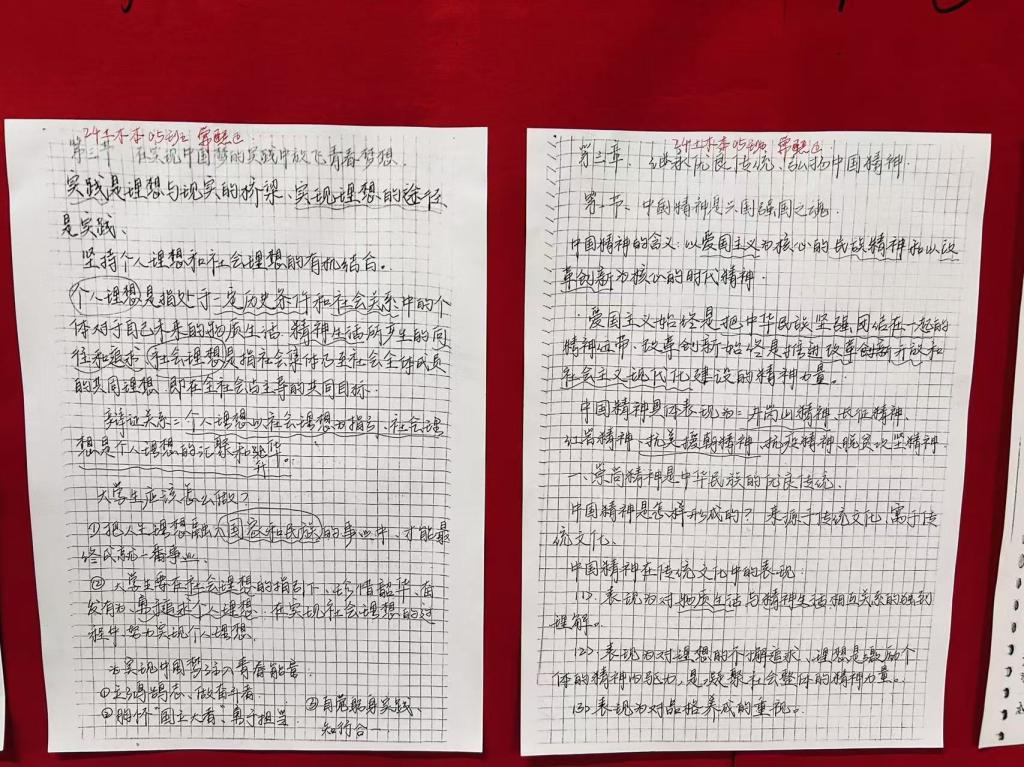 第三章 在实现中国梦的实践中放飞青春梦想.
实践是理想与现实的桥梁、实现理想的途径
是实践、
坚持个人理想和社会理想的有机结合。
个人理想是指处于一定历史条件和社会关系中的个
体对于自己未来的物质生活、精神生活所产生的向
往和追求 社会理想是指社会集体乃至社会全体成员
的共同理想、即在全社会占主导的共同目标.
辩证关系:个人理想以社会理想为指引、社会理
想是个人理想的汇聚和升华。
大学生应该怎么做?
①把人生理想融入国家和民族的事业中、才能最
终成就一番事业
②大学生要在社会理想的指引下、珍惜韶华、奋
发有为、勇于追求个人理想、在实现社会理想的过
程中、努力实现个人理想.
为实现中国梦注入青春能量:
①立鸿鹄志、做奋斗者
②胸怀“国之大者”、勇于担当
③自觉躬身实践、
知行合一
24土木本05班
第三章. 继承优良传统、弘扬中国精神
第一节、中国精神是兴国强国之魂.
中国精神的含义:以爱国主义为核心的民族精神和以改
革创新为核心的时代精神.
·爱国主义始终是把中华民族坚强团结在一起的
精神纽带、改革创新始终是推进改革创新开放和
社会主义现代化建设的精神力量。
中国精神具体表现为:井岗山精神、长征精神、
红岩精神、抗美援朝精神、抗疫精神、脱贫攻坚精神.
一、崇尚精神是中华民族的优良传统.
中国精神是怎样形成的? 来源于传统文化、寓于传
统文化、
中国精神在传统文化中的表现:
(1)、表现为对物质生活与精神生活相互关系的独到
理解。
(2)、表现为对理想的不懈追求、理想是激励个
体的精神内驱力,是凝聚社会整体的精神力量。
(3)、表现为对品格养成的重视。